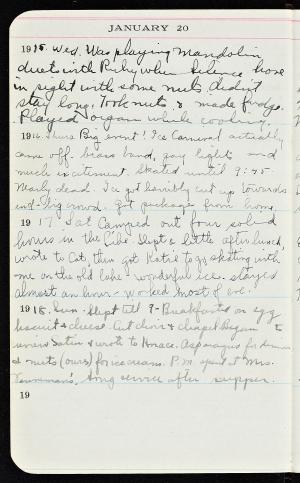 JANUARY 20
1915. Wed. Was playing mandolin
duets with Ruby when Helence hove
in sight with some nuts didn't
stay long. Took nuts & made fudge.
Played organ while cooking.
1916 Thurs Big event! Ice Carnival actually
came off. brass band, gay lights and
much excitement. Skated until 9:45.
Nearly dead. Ice got horribly cut up towards
end - big crowd. Got package from home.
1917 Sat Camped out four solid
hours in the Libe. Slept a little after lunch,
wrote to Cat, then got Katie to go skating with
me on the old lake - wonderful ice. stayed
almost an hour - worked most of eve.
1918. Sun. Slept till 9 - Breakfasted on egg
biscuit & cheese. Cut choir & chapel. Began to
& wrote to Horace. Asparagus for dinner
& nuts (ours) for ice cream. P.M. spent at Mrs.
song service after supper.
19